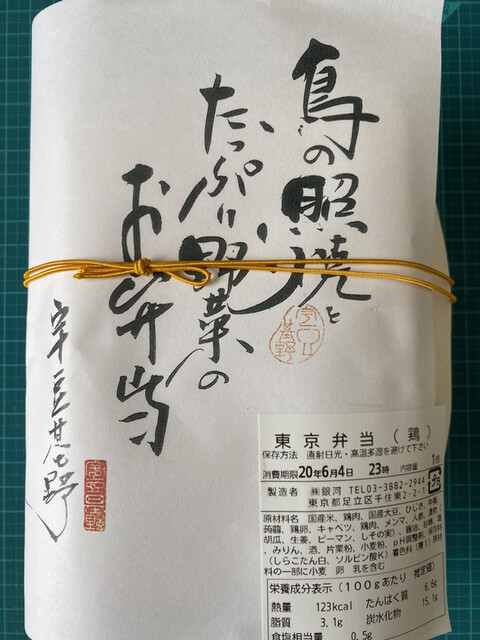 鳥の照焼と
たっぷり野菜の
お弁当
宰豆其野
東京弁当(鶏)
保存方法 直射日光・高温多湿を避けて下さい
消費期限20年6月4日 23時 内容量 1個
製造者 ㈱銀河 TEL03-3882-2944
東京都足立区千住東2-2-1
原材料名 国産米、鶏肉、国産大豆、ひじき、
蒟蒻、鶏卵、キャベツ、鶏肉、メンマ、人参、漬物
胡瓜、生姜、ピーマン、しその実)、醤油、砂糖、
、みりん、酒、片栗粉、小麦粉、pH調整剤、保存料
(しらこたん白、ソルビン酸K) 着色料(黄)原材
料の一部に小麦 卵 乳を含む
栄養成分表示(100gあたり 推定値)
熱量 123kcal たんぱく質 6.6g
脂質 3.1g 炭水化物 15.1g
食塩相当量 0.5g